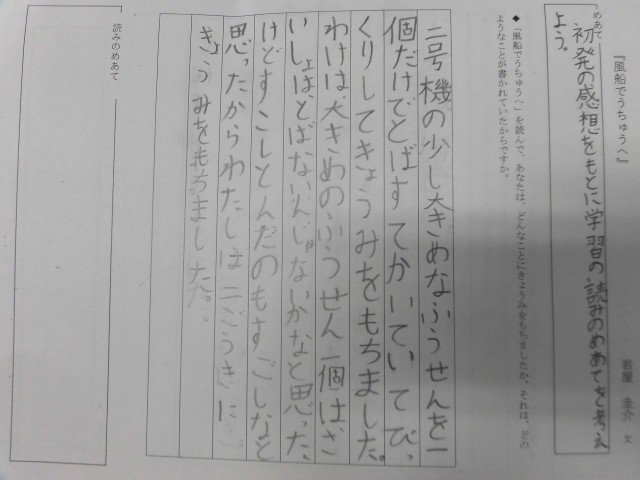 『風船でうちゅうへ』
岩屋 圭介 文
めあて
初発の感想をもとに学習の読みのめあてを考え
よう。
◆「風船でうちゅうへ」を読んで、あなたは、どんなことにきょうみをもちましたか。それは、どの
ようなことが書かれていたからですか。
二号機の少し大きめなふうせんを一
個だけでとばすてかいていてびっ
くりしてきょうみをもちました。
わけは、大きめのふうせん一個はさ
いしょは、とばないんじゃないかなと思った、
けどすこしとんだのもすごしなと
思ったからわたしは二ごうきに
きょうみをもちました。
読みのめあて